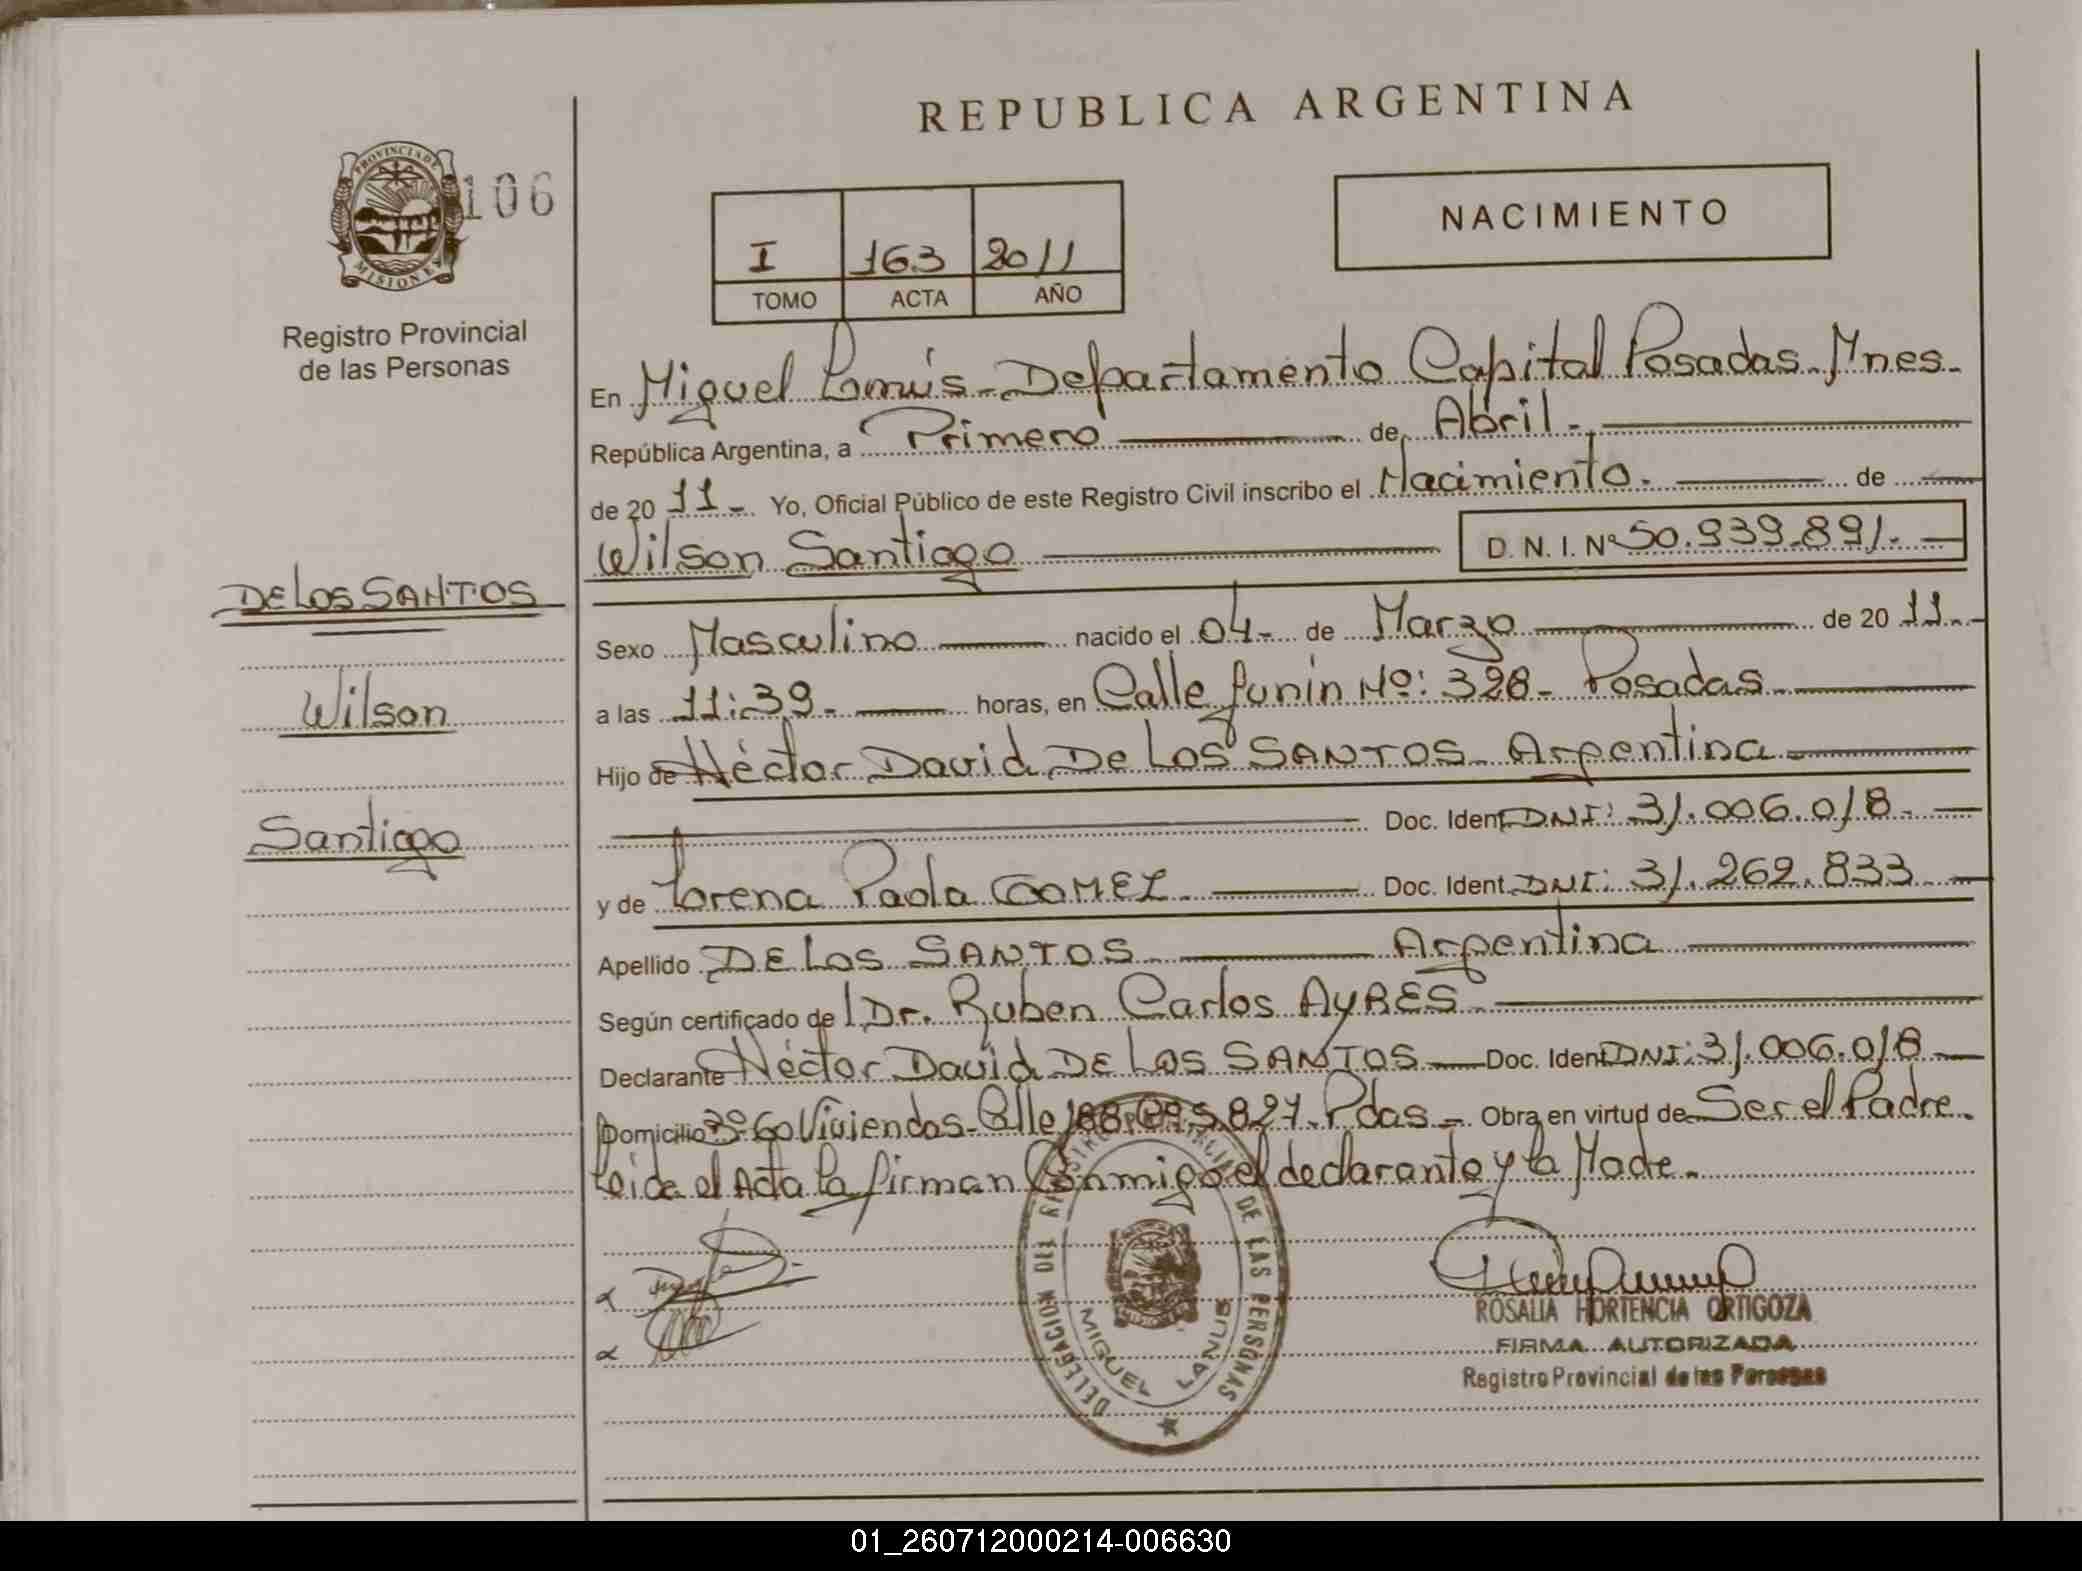 REPUBLICA ARGENTINA
PROVINCIA DE MISIONES
106
Registro Provincial
de las Personas
NACIMIENTO
I 163 2011
TOMO ACTA AÑO
En Miguel Lanús - Departamento Capital Posadas - Mnes -
República Argentina, a Primero de Abril -
de 20 11 - Yo, Oficial Público de este Registro Civil inscribo el Nacimiento - de
Wilson Santiago D. N. I. Nº 50.939.891 -
DE LOS SANTOS
Wilson
Santiago
Sexo Masculino nacido el 04 - de Marzo de 20 11 -
a las 11:39 - horas, en Calle Junín Nº: 328 - Posadas
Hijo de Héctor David De Los SANTOS - Argentina
Doc. Ident. DNI: 31.006.018 -
y de Lorena Paola GOMEZ - Doc. Ident. DNI: 31.262.833
Apellido DE LOS SANTOS Argentina
Según certificado de l Dr. Ruben Carlos AYRES -
Declarante Héctor David DE LOS SANTOS - Doc. Ident DNI: 31.006.018 -
Domicilio 3º 60 Viviendas - Calle 188 5827 - Pdas - Obra en virtud de Ser el Padre -
Leida el Acta la firman Conmigo el declarante y la Madre -
DELEGACION DEL REGISTRO PROVINCIAL DE LAS PERSONAS
MIGUEL LANUS
ROSALIA HORTENCIA ORTIGOZA
FIRMA AUTORIZADA
Registro Provincial de las Personas
01_260712000214-006630